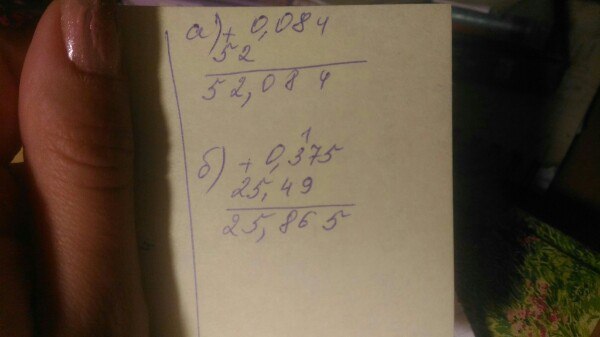 а) + 0,084
52
52,084
1
б) + 0,375
25,49
25,865